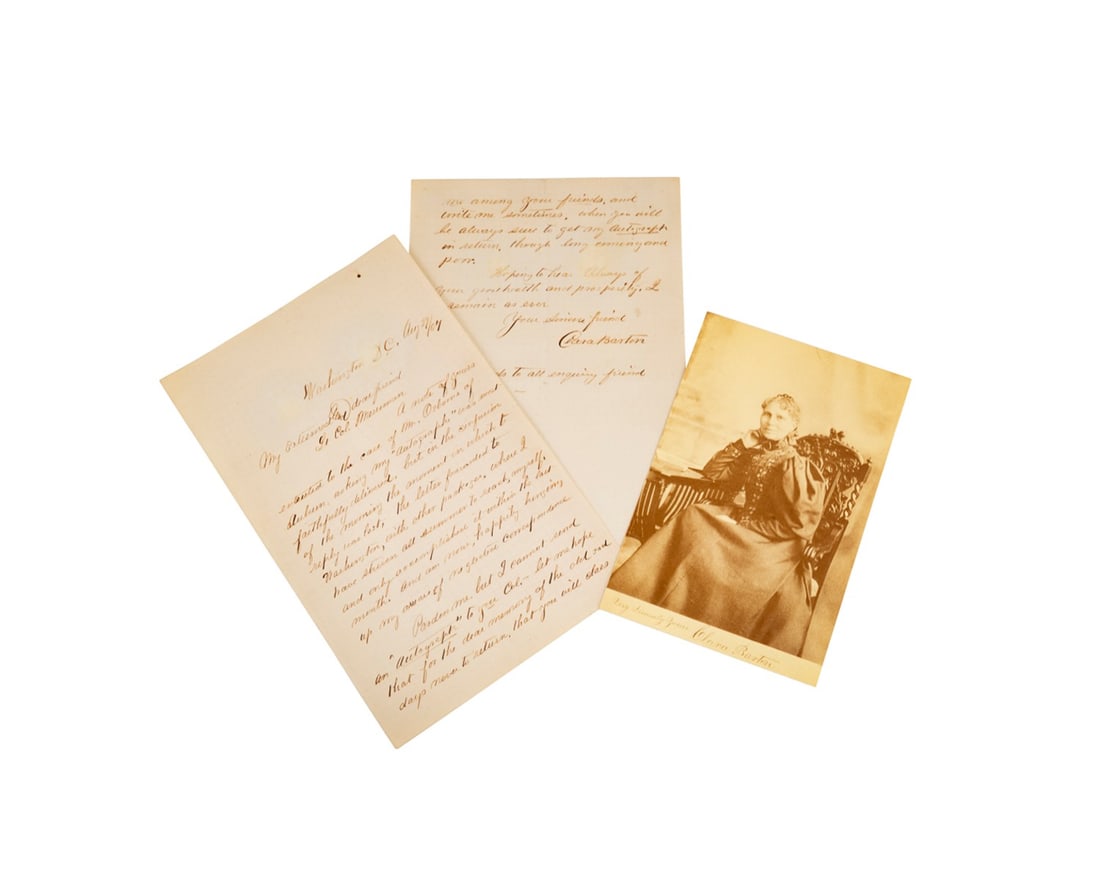 Washington D.C. Aug
My esteemed and dear friend
Lt Col. Merriman
A note of yours
entrusted to the care of Mr. Osborne of
Auburn, asking my "Autograph" was most
faithfully delivered but in the confusion
of the morning the moment in which to
reply was lost. The letter proceeded to
Washington, with other packages, where I
have striven all summer to reach, myself,
and only accomplished it within the last
month. And am now happily bringing
up my arrears of neglected correspondence
Pardon me, but I cannot send
an "Autograph" to you Col.- let me hope
that for the dear memory of the old
days never to return, that you will class
me among your friends, and
write me sometimes, when you will
be always sure to get my Autograph
in return, though long coming and
poor.
Hoping to hear always of
your good health and prosperity, I
remain as ever
Your sincere friend
Clara Barton
to all enquiring friend
Very Sincerely Yours
Clara Barton